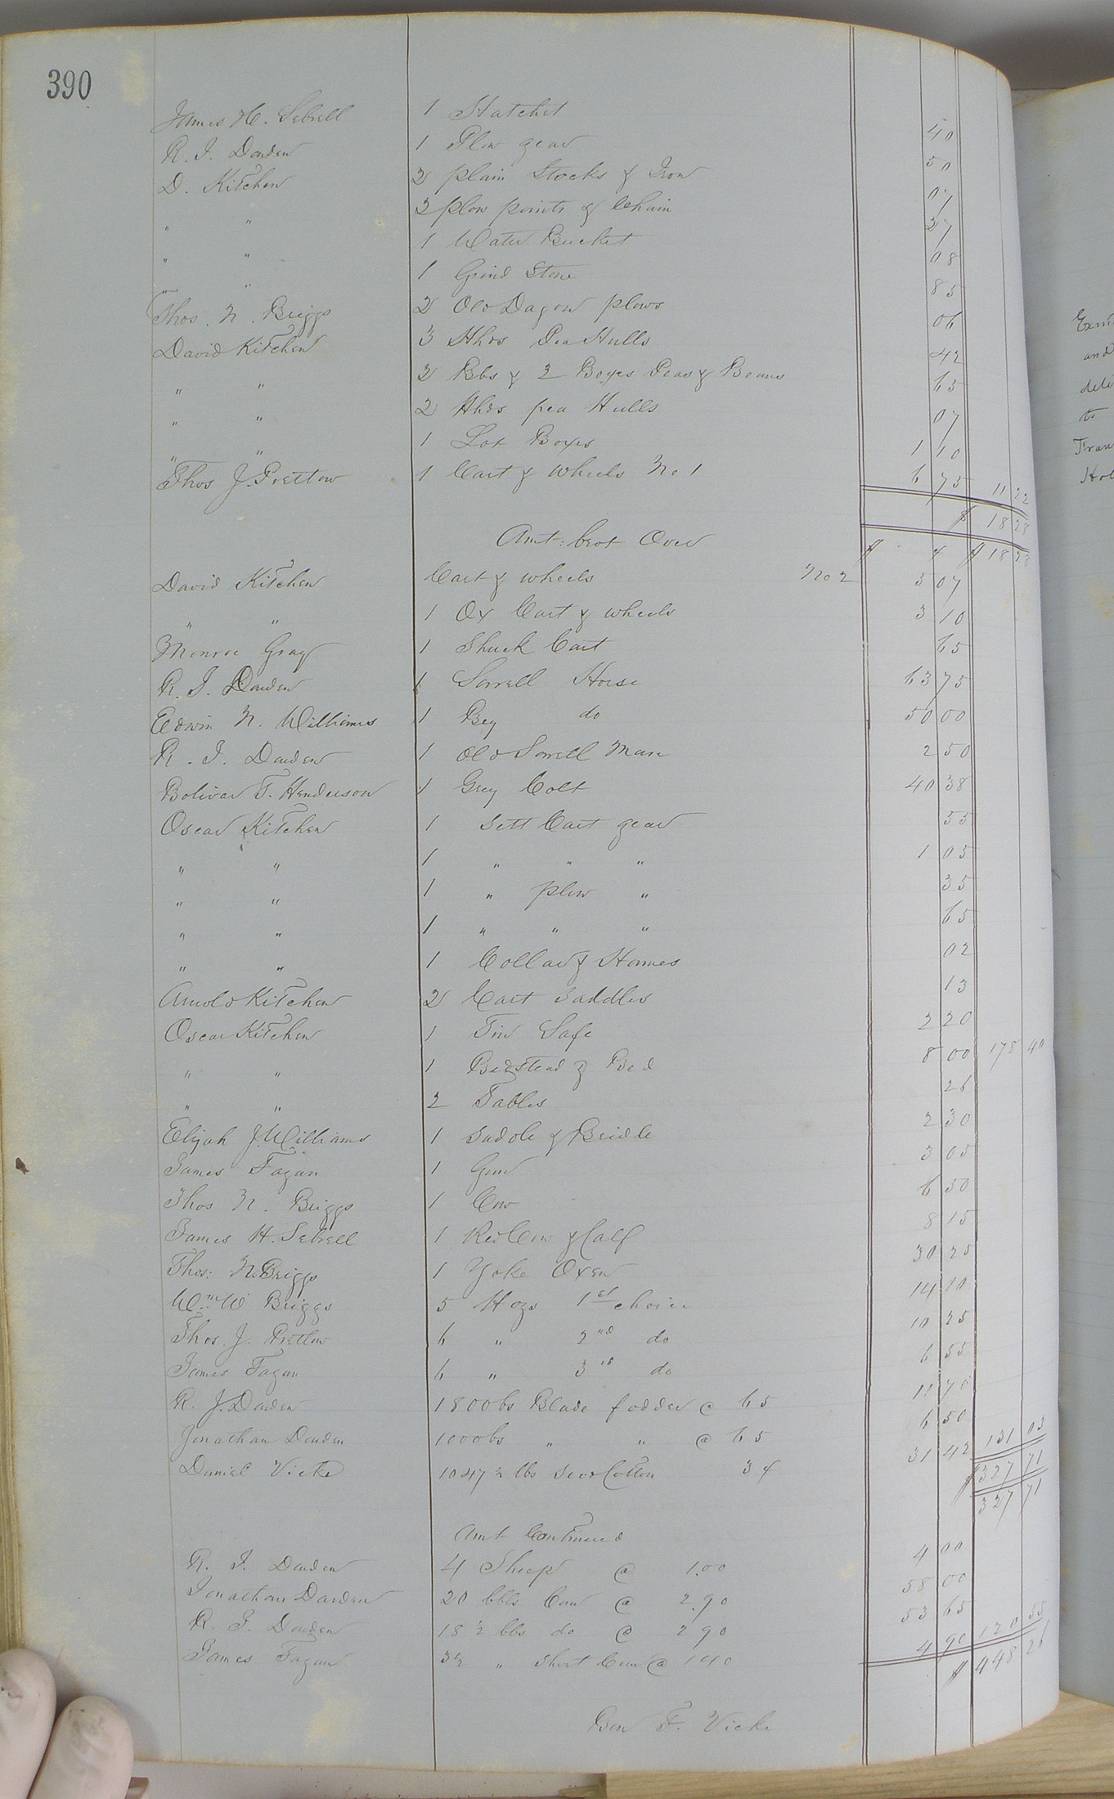 390
James H. Sebrell 1 Hatchet 40
R. J. Darden 1 Plow gear 50
D. Kitchen 2 plain Stocks & Iron 07
" " 2 plow points & Chain 27
" " 1 Water Bucket 08
" " 1 Grind Stone 85
Thos. N. Briggs 2 Old Dagon plows 06
David Kitchen 3 Hhds Pea Hulls 42
" " 2 Bbs & 2 Boxes Peas & Beans 65
" " 2 Hhds pea Hulls 07
" " 1 Lot Boxes 1 10
Thos J. Pretlow 1 Cart & Wheels No 1 6 75 11 22
$ 18 28
Amt: brot Over $ " " $ 18 28
David Kitchen Cart & wheels No 2 3 07
" " 1 Ox Cart & wheels 3 10
Monroe Gray 1 Shuck Cart 65
R. J. Darden 1 Sorrell Horse 63 75
Edwin N. Williams 1 Bey do 50 00
R. J. Darden 1 Old Sorrell Mare 2 50
Bolivar T. Henderson 1 Grey Colt 40 38
Oscar Kitchen 1 Sett Cart gear 55
" " 1 " " " 1 05
" " 1 " plow " 35
" " 1 " " " 65
" " 1 Collar & Hames 02
Arnold Kitchen 2 Cart Saddles 13
Oscar Kitchen 1 Tin Safe 2 20
" " 1 Bedstead & Bed 8 00 178 40
" " 2 Tables 26
Elijah J. Williams 1 Saddle & Bridle 2 30
James Fagan 1 Gun 3 05
Thos N. Briggs 1 Cow 6 50
James H. Sebrell 1 Red Cow & Calf 8 15
Thos: N. Briggs 1 Yoke Oxen 30 25
Wm W Briggs 5 Hogs 1st choice 14 10
Thos. J. Pretlow 6 " 2nd do 10 25
James Fagan 6 " 3rd do 6 55
R. J. Darden 1800 lbs Blade fodder @ 65 11 70
Jonathan Darden 1000 lbs " " @ 65 6 50
Daniel Vick 1047½ lbs Seed Cotton 3 ¢ 31 42 131 03
$ 327 71
327 71
Amt Continued
R. J. Darden 4 Sheep @ 1.00 4 00
Jonathan Darden 20 bbls Corn @ 2.90 58 00
R. J. Darden 18½ bbs do @ 2 90 53 65
James Fagan 3½ " Short Corn @ 140 4 90 120 55
$ 448 26
Ben F. Vick
and
to